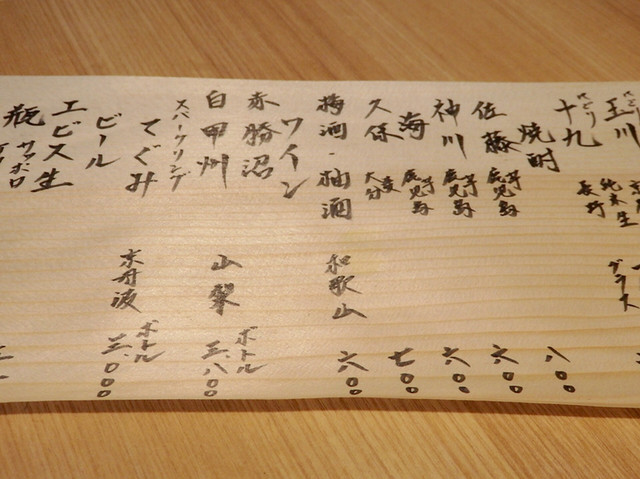 にごり 玉川 純米生 グラス 一
にごり 十九 長野
焼酎 八〇〇
佐藤 芋 鹿児島 六〇〇
神川 芋 鹿児島 六〇〇
海 芋 鹿児島 七〇〇
久保 麦 大分 六〇〇
梅酒・柚酒 和歌山
ワイン
赤 勝沼
白 甲州 山梨 ボトル 三、八〇〇
スパークリング
てぐみ 京丹波 ボトル 三、〇〇〇
ビール
エビス生
瓶 サッポロ